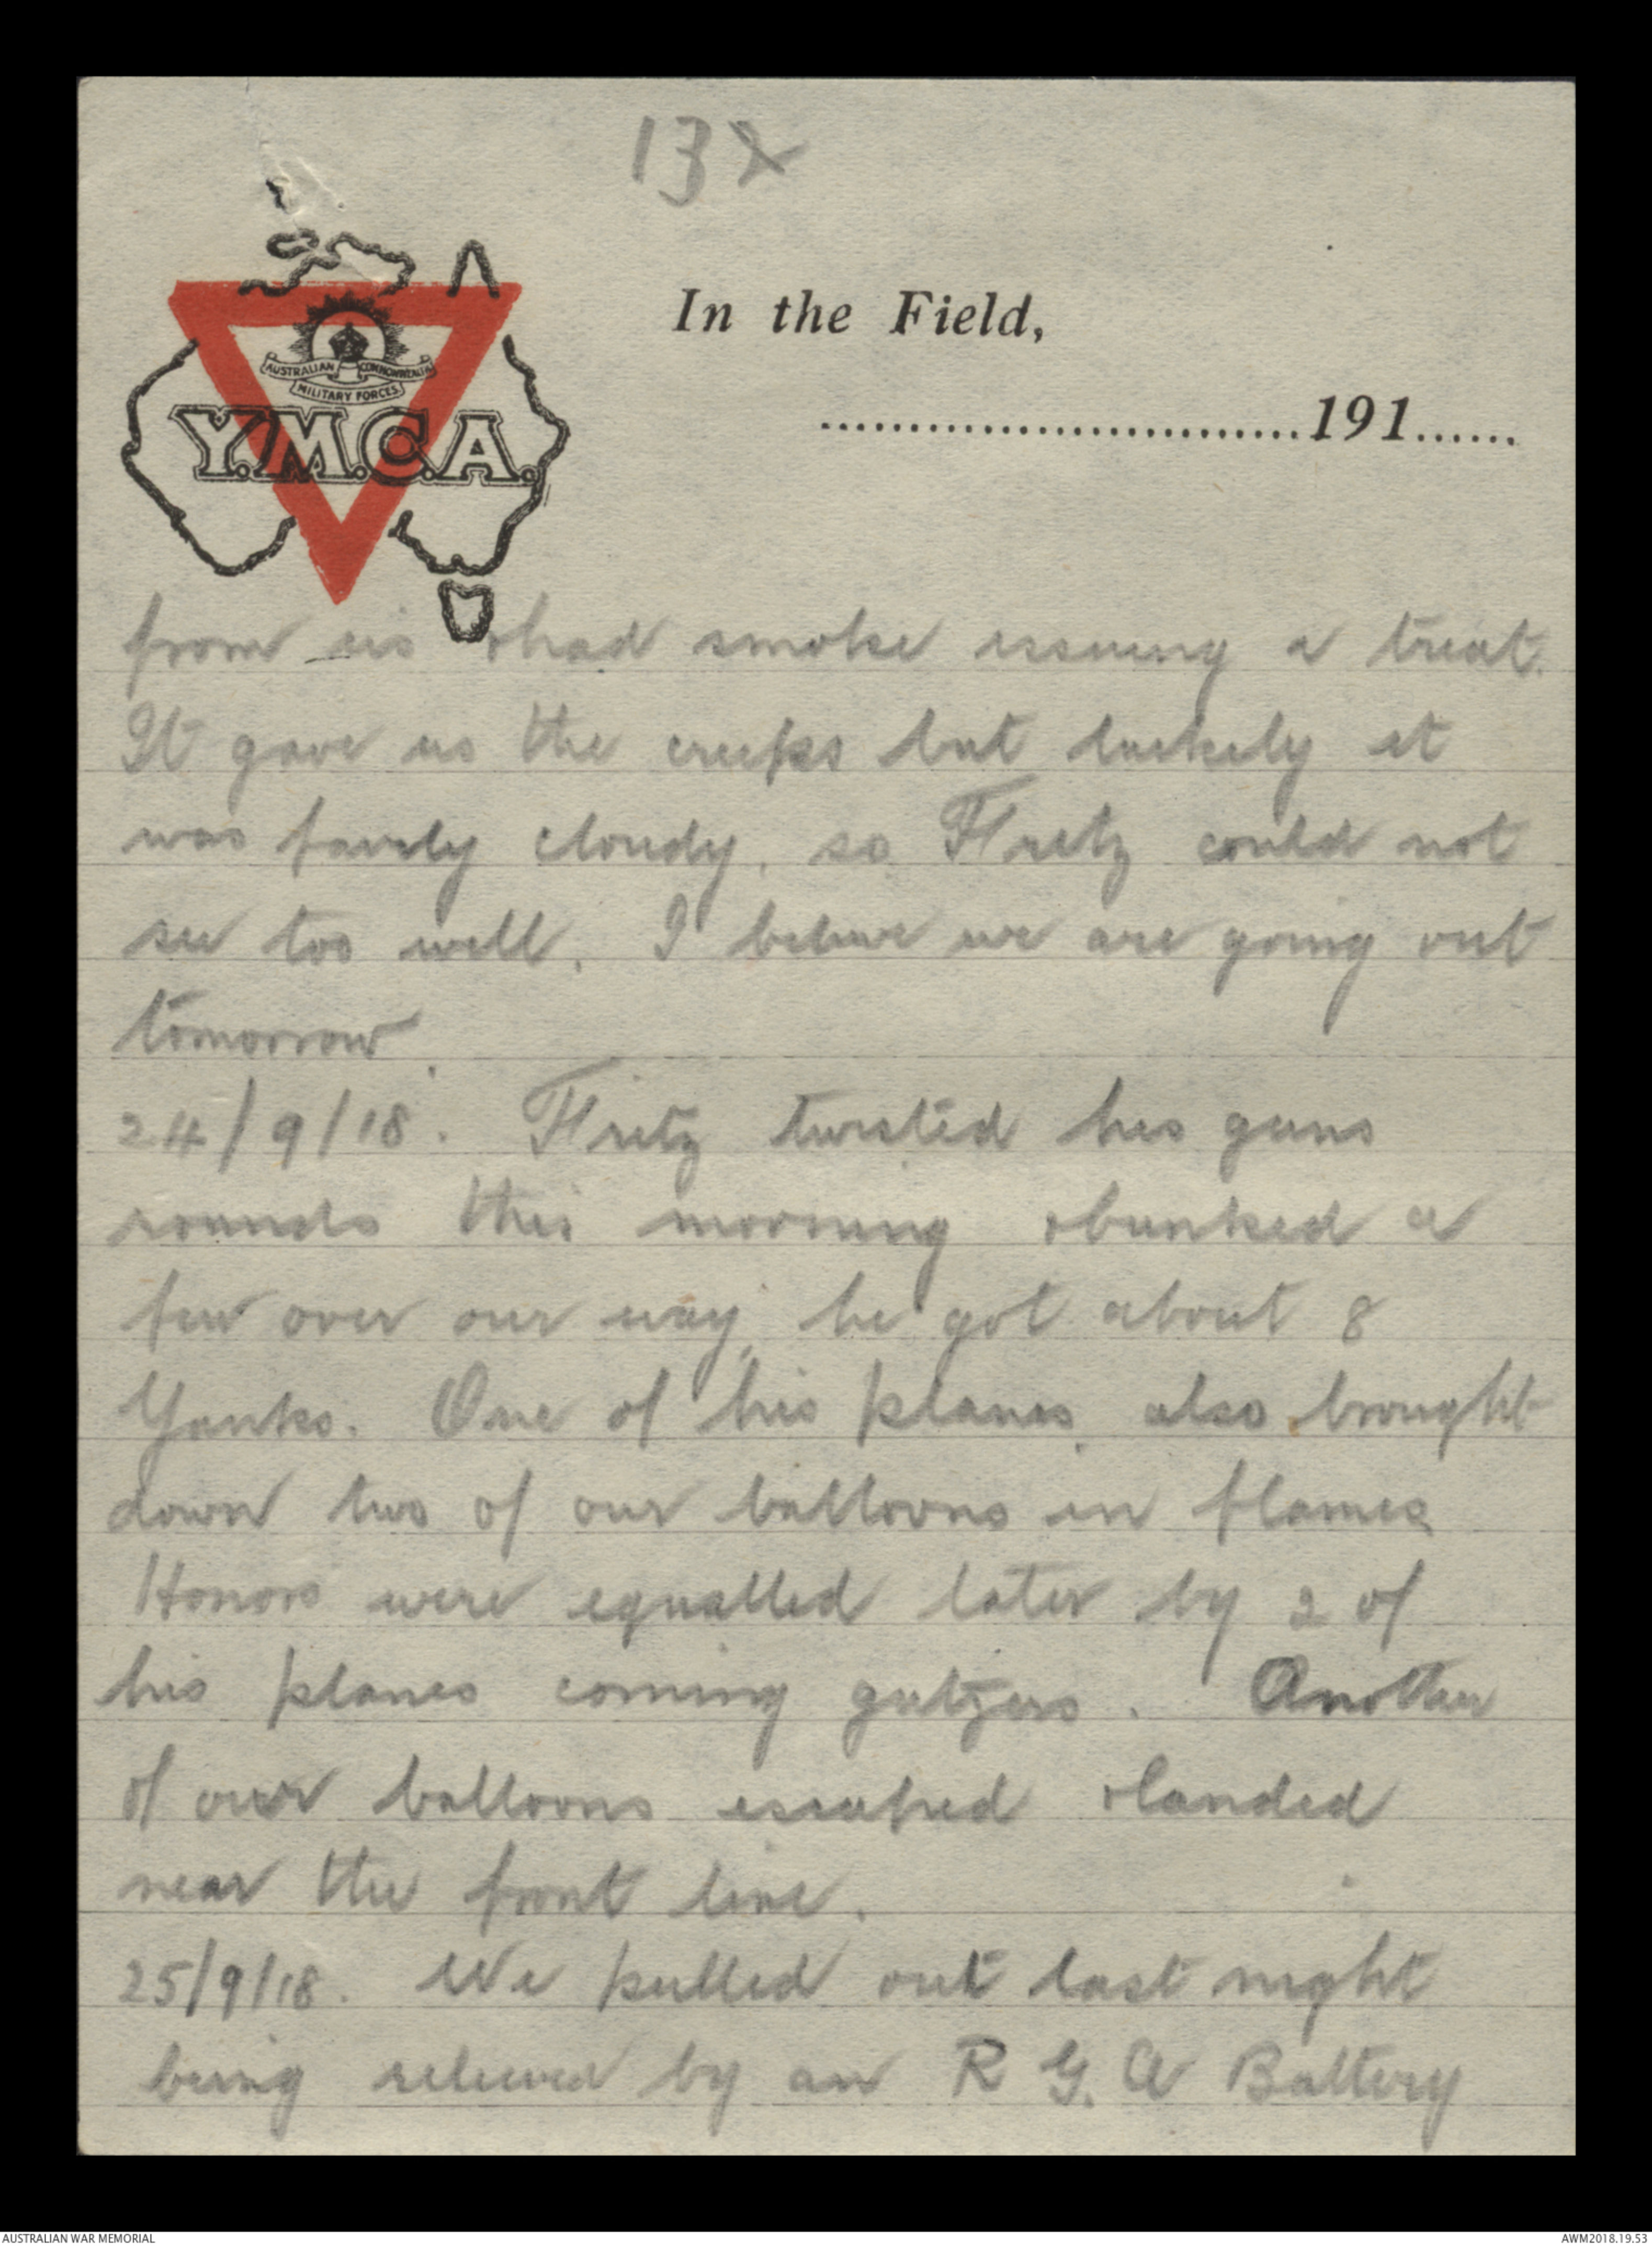 13X
In the Field,
AUSTRALIAN COMMONWEALTH
MILITARY FORCES
Y.M.C.A.
............................191......
from us & had smoke issuing a treat.
It gave us the creeps but luckily it
was fairly cloudy, so Fritz could not
see too well. I believe we are going out
tomorrow.
24/9/18. Fritz twisted his guns
rounds this morning & bunked a
few over our way, he got about 8
Yanks. One of his planes also brought
down two of our balloons in flames
Honors were equalled later by 2 of
his planes coming gutzers. Another
of our balloons escaped & landed
near the front line.
25/9/18. We pulled out last night
being relieved by an R G. A Battery
AUSTRALIAN WAR MEMORIAL
AWM2018.19.53